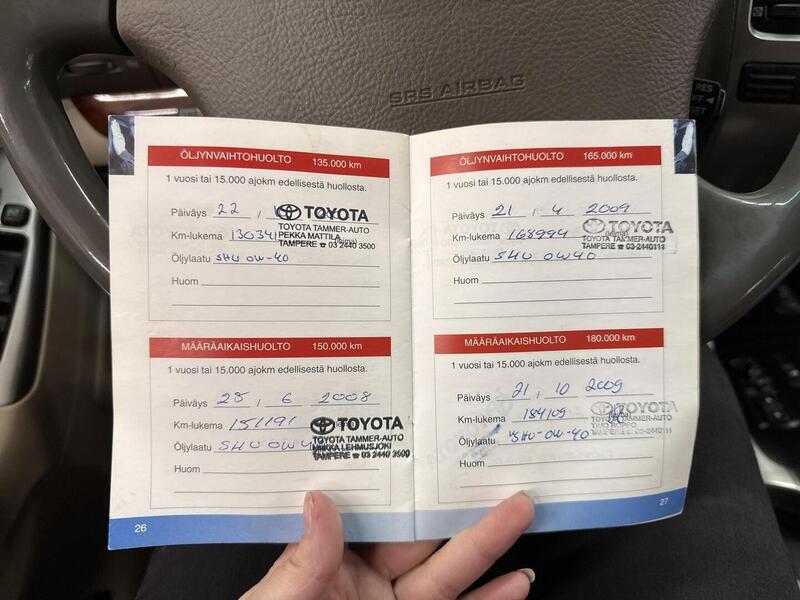 SRS AIRBAG
RES
ÖLJYNVAIHTOHUOLTO 135.000 km
1 vuosi tai 15.000 ajokm edellisestä huollosta.
Päiväys 22
TOYOTA
TOYOTA TAMMER-AUTO
Km-lukema 130341
PEKKA MATTILA
TAMPERE ☎ 03 2440 3500
Öljylaatu SHU 0W-40
Huom
MÄÄRÄAIKAISHUOLTO 150.000 km
1 vuosi tai 15.000 ajokm edellisestä huollosta.
Päiväys 25 / 6 2008
Km-lukema 151191
TOYOTA
TOYOTA TAMMER-AUTO
Öljylaatu SHU 0W4
MIIKKA LEHMUSJOKI
TAMPERE ☎ 03 2440 3500
Huom
26
ÖLJYNVAIHTOHUOLTO 165.000 km
1 vuosi tai 15.000 ajokm edellisestä huollosta.
Päiväys 21 / 4 2009
TOYOTA
Km-lukema 168994
TOYOTA TAMMER-AUTO
TAMPERE ☎ 03-2440111
Öljylaatu SHU 0W40
Huom
MÄÄRÄAIKAISHUOLTO 180.000 km
1 vuosi tai 15.000 ajokm edellisestä huollosta.
Päiväys 21 / 10 2009
Km-lukema 184109
TOYOTA
TOYOTA TAMMER-AUTO
TIMO ROPPO
TAMPERE ☎ 03-2440111
Öljylaatu SHU-0W-40
Huom
27